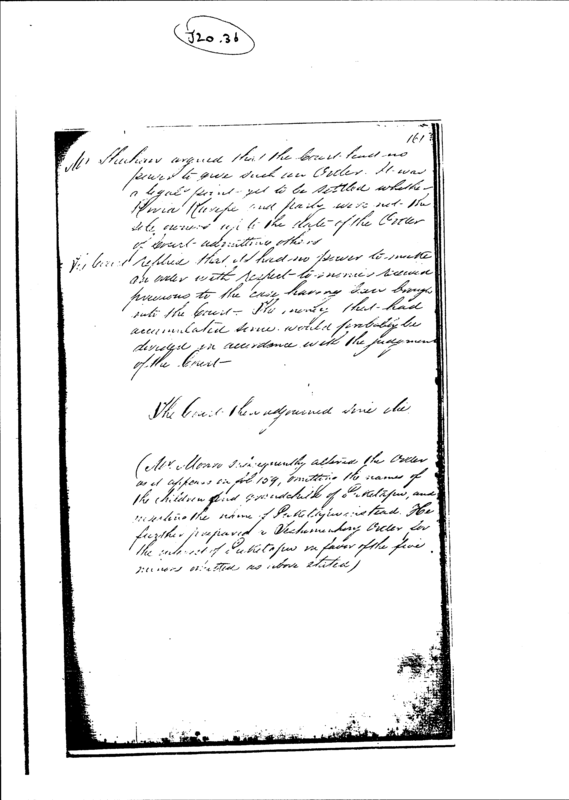 J20.36
161
Mr Sheehan argued that the Court had no
power to give such an Order. It was
a legal point yet to be settled whether
and party were not the
sole owners up to the date of the Order
of Court admitting others
The Court replied that it had no power to make
an order with respect to monies received
previous to the case having been brought
into the Court – The money that had
accumulated since would probably be
divided in accordance with the judgment
of the Court –
The Court then adjourned sine die
(Mr. Monro subsequently altered the Order
as it appears on fol 159, omitting the names of
the children and grandchild of and
inserting the name of instead. He
further prepared a Testamentary Order for
the interest of in favor of the five
minors omitted as above stated)